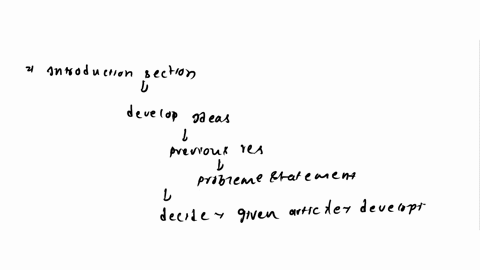 * introduction section
↳
develop ideas
↳
previous res
↳
probleme statement
↳
decide → given article → developt